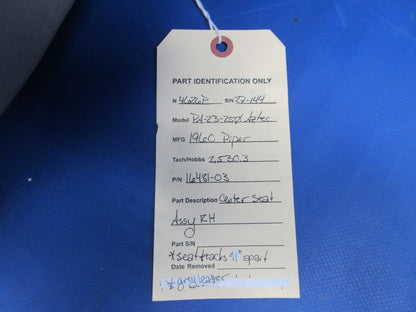 PART IDENTIFICATION ONLY
N 4626P S/N 27-144
Model PA-23-250/ Aztec
MFG 1960 Piper
Tach/Hobbs 2,530.3
P/N 16481-03
Part Description Center Seat
Assy RH
Part S/N
* seat tracks 11" apart
Date Removed
* grey leather